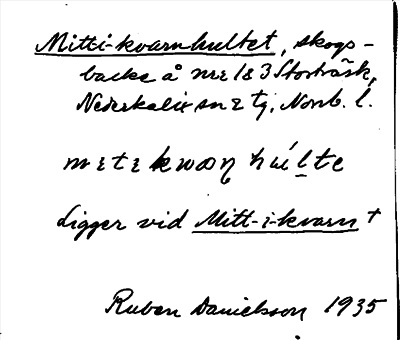 Mitt-i-kvarnhultet, skogs-
backe å nr 1 & 3 Storträsk,
Nederkalix sn & tg, Norrb. l.
Ligger vid Mitt-i-kvarn +
Ruben Danielsson 1935